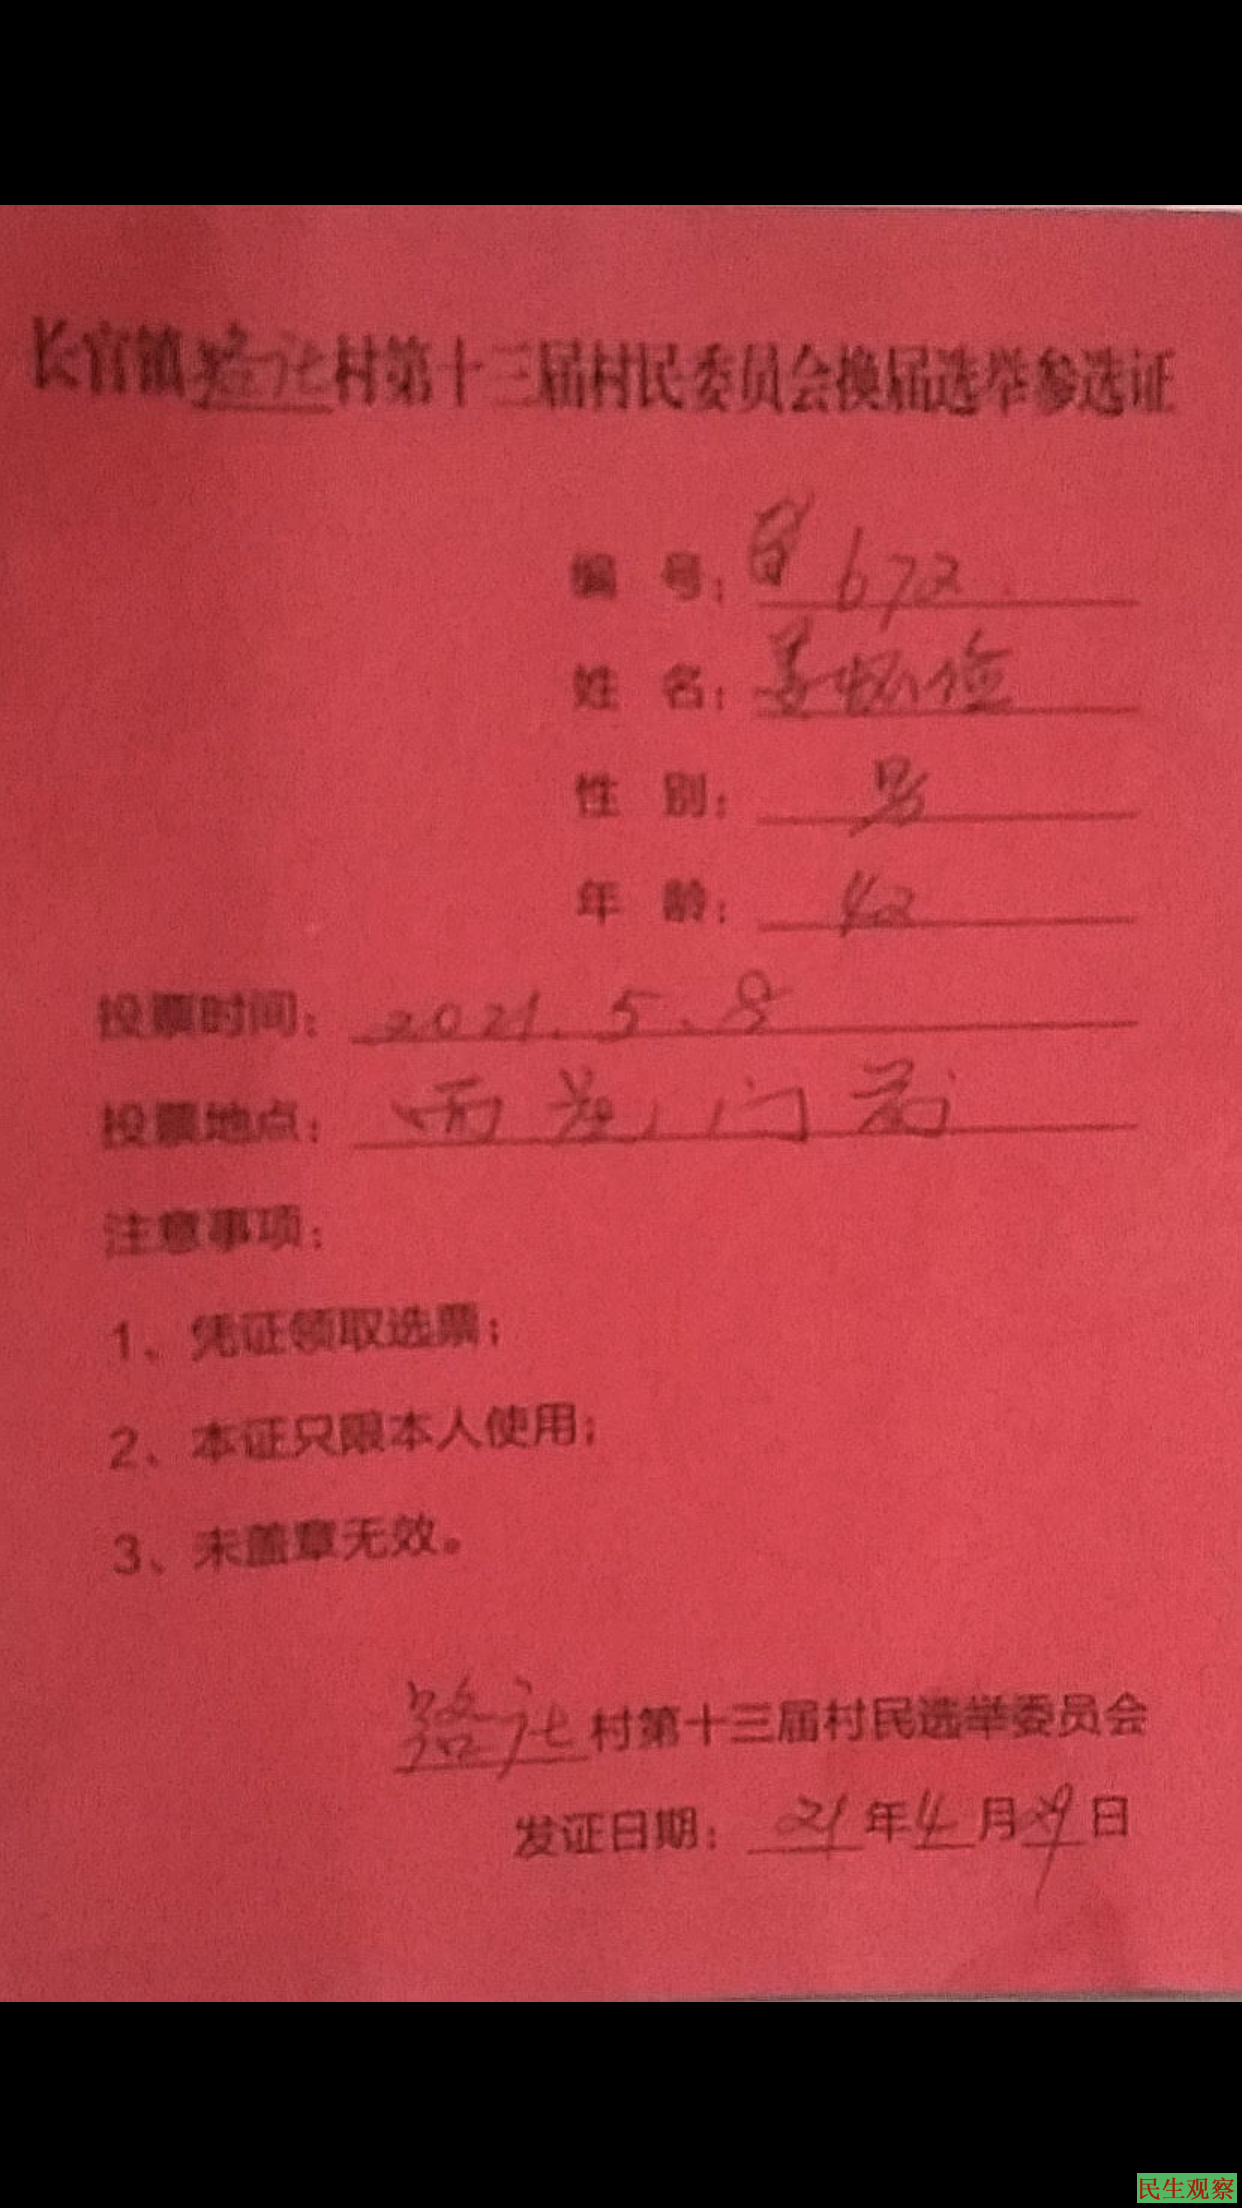 长官镇路庄村第十三届村民委员会换届选举参选证
编 号: 672
姓 名: 姜怀俭
性 别: 男
年 龄: 42
投票时间: 2021.5.8
投票地点: 西 门前
注意事项:
1、凭证领取选票;
2、本证只限本人使用;
3、未盖章无效。
路庄村第十三届村民选举委员会
发证日期: 21年4月29日
民生观察